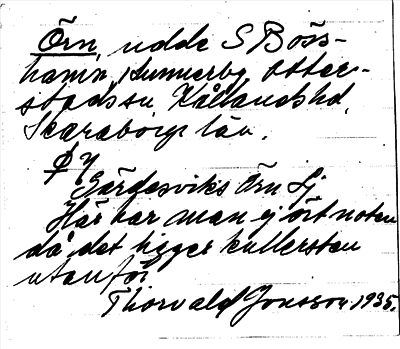 Örn, udde S Böss-
hamn, Hunnerby, Otter-
stads sn Kållands hd,
Skaraborgs län.
Gärdesviks Örn Lj
Här har man ej ört noten
då det ligger kullersten
utanför
Thorvald Jonsson. 1935.